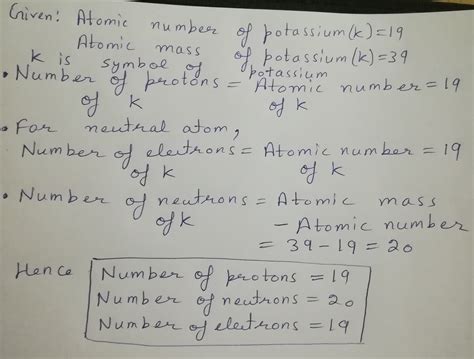 Given: Atomic number of potassium(k)=19
Atomic mass of potassium(k)=39
k is symbol of potassium
• Number of protons = Atomic number = 19
of k of k
• For neutral atom,
Number of electrons = Atomic number = 19
of k of k
• Number of neutrons = Atomic mass
of k - Atomic number
= 39-19 = 20
Hence Number of protons = 19
Number of neutrons = 20
Number of electrons = 19